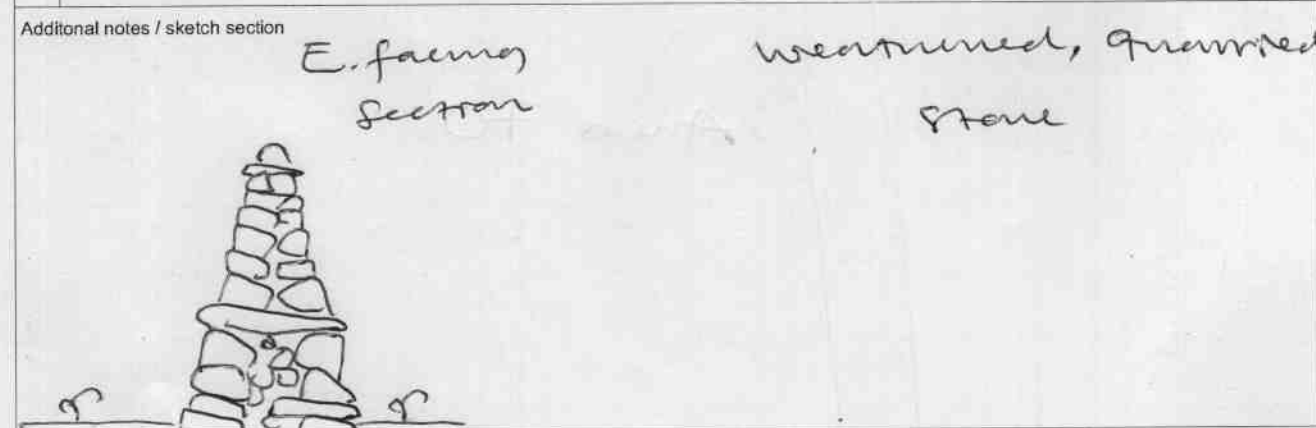 Additonal notes / sketch section
E. facing
Section
weathered, quarried
stone